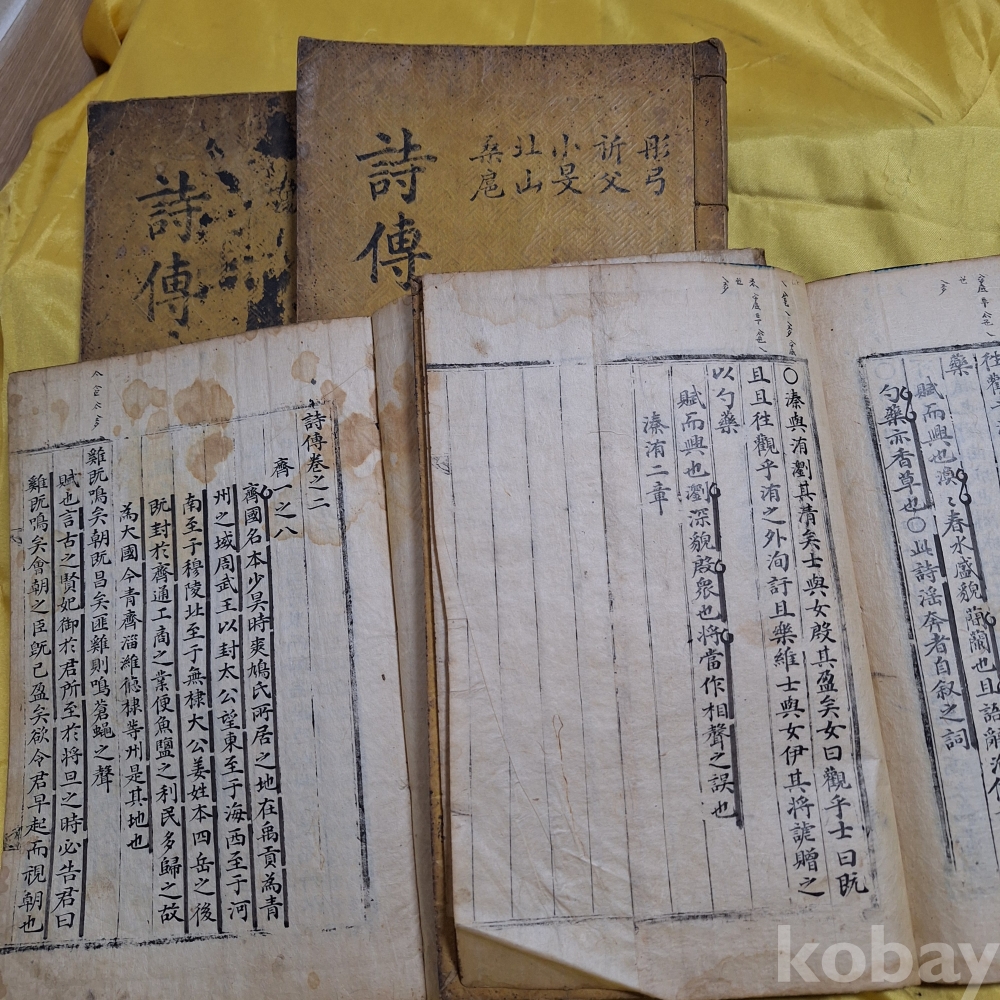 詩傳
詩傳
彤弓
祈父
小旻
北山
桑扈
詩傳卷之二
齊一之八
齊國名本少昊時爽鳩氏所居之地在禹貢為青
州之域周武王以封太公望東至于海西至于河
南至于穆陵北至于無棣大公姜姓本四岳之後
既封於齊通工商之業便魚鹽之利民多歸之故
為大國今青齊淄濰德棣等州是其地也
雞既鳴矣朝既昌矣匪雞則鳴蒼蠅之聲
賦也言古之賢妃御於君所至於將旦之時必告君曰
雞既鳴矣會朝之臣既已盈矣欲令君早起而視朝也
藥
賦而興也渙〻春水盛貌蕑蘭也且語辭洵信
勺藥亦香草也○此詩淫奔者自叙之詞
○溱與洧瀏其清矣士與女殷其盈矣女曰觀乎士曰既
且且往觀乎洧之外洵訏且樂維士與女伊其將謔贈之
以勺藥
賦而興也瀏深貌殷衆也將當作相聲之誤也
溱洧二章
kobay